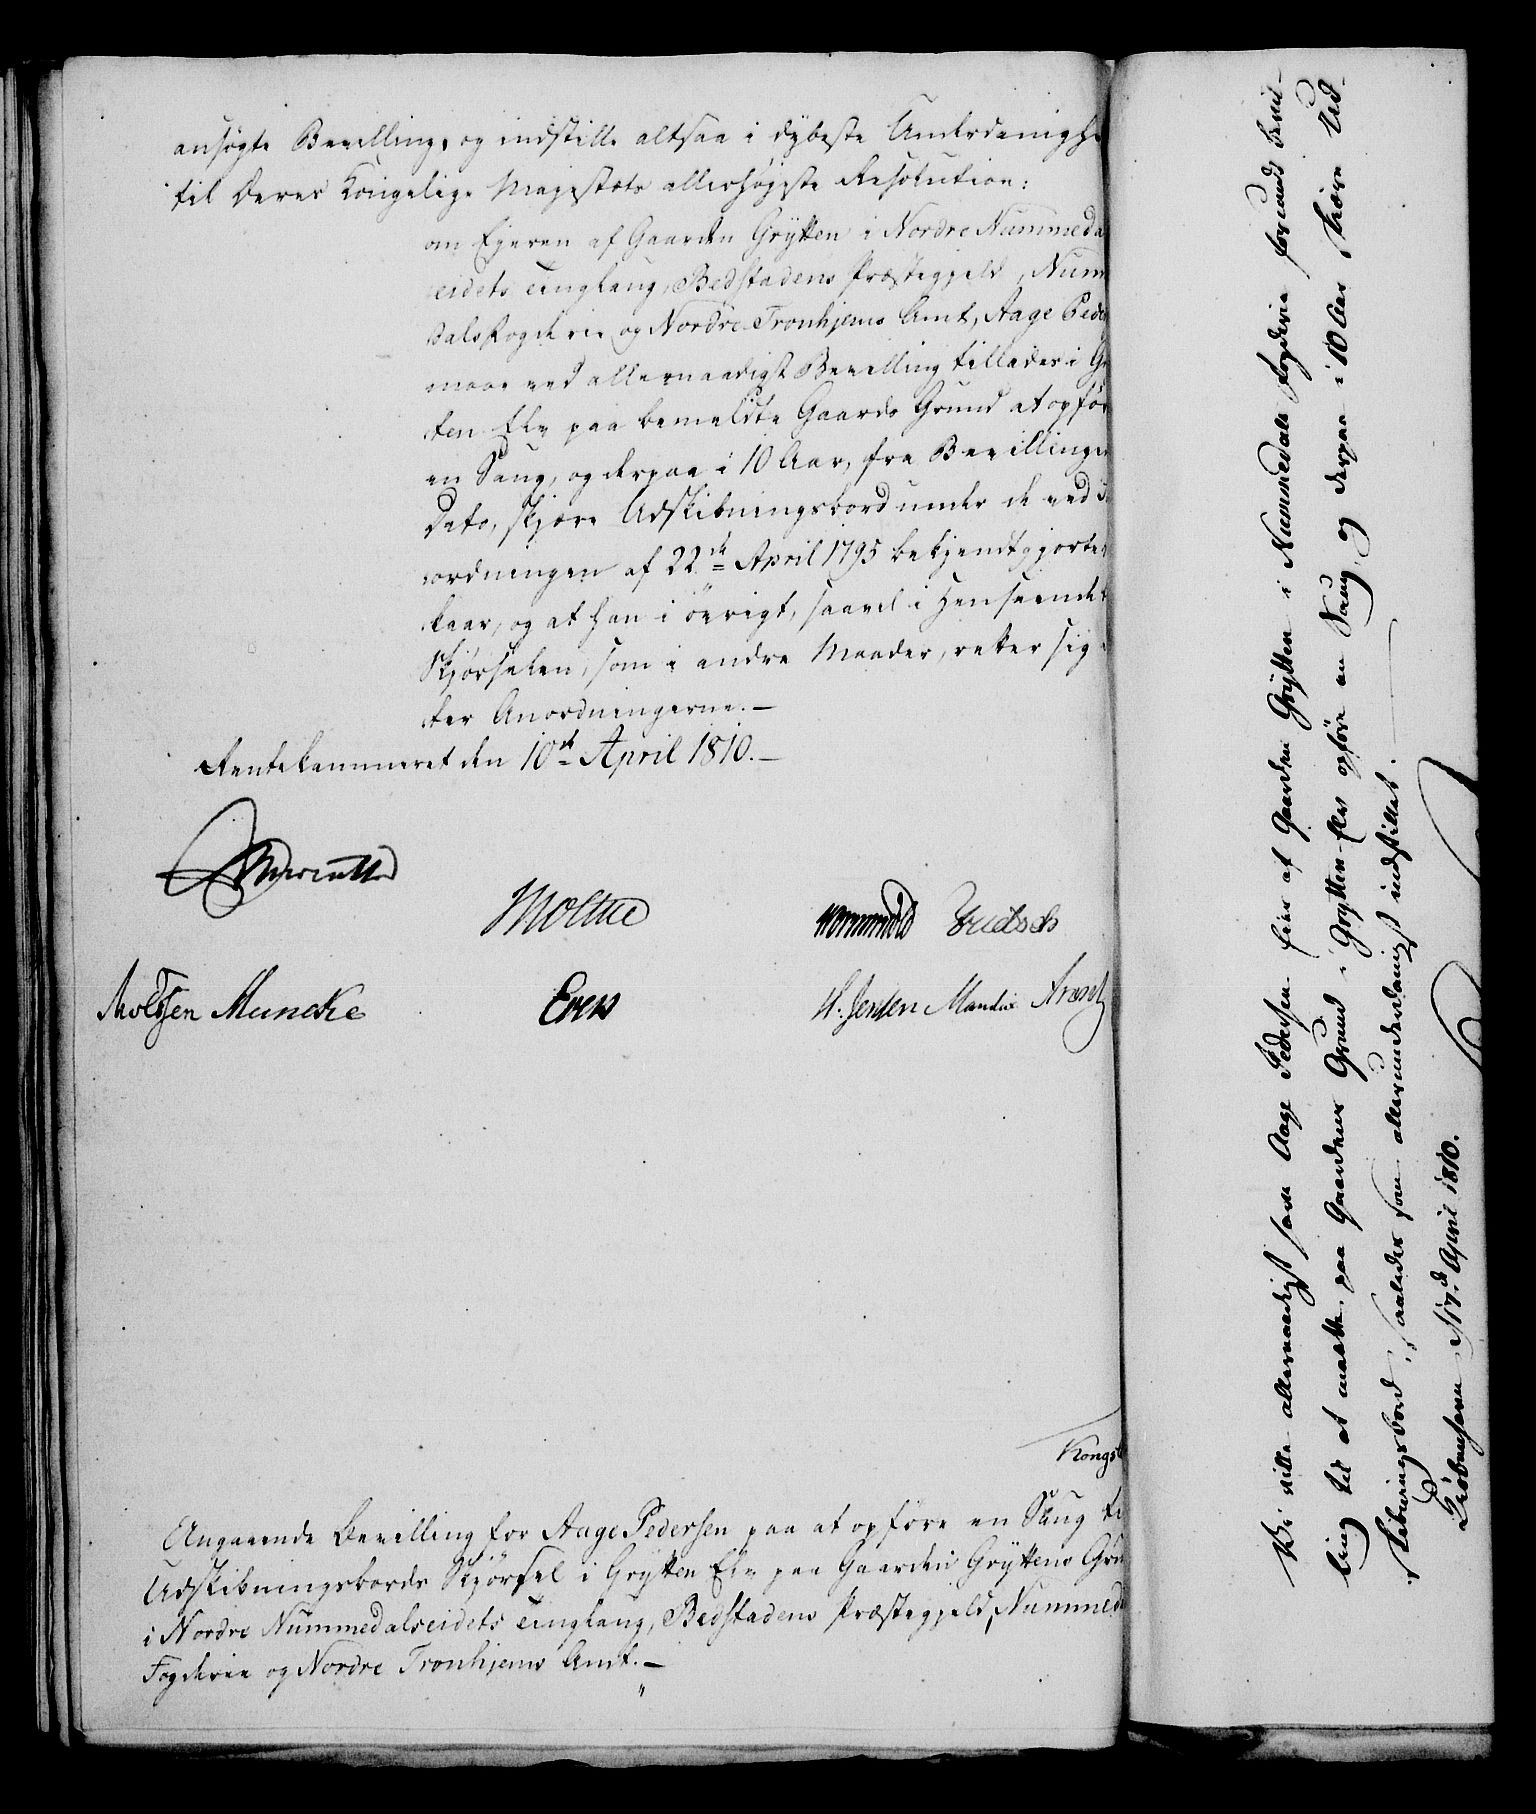 ansøgte Bevilling, og indstille altsaa i dybeste Underdanighe
til Deres Kongelige Majestæts allerhøjeste Resolution:
om Ejeren af Gaarden Grÿtten i Nordre Nummeda
eidets Tinglaug, Bedstadens Præstegjeld, Num
dals Fogderie og Nordre Tronhjems Amt, Aage Peder
maae ved allernaadigst Bevilling tillades i Grÿ
ten Elv paa bemeldte Gaards Grund at opfør
en Saug, og derpaa i 10 Aar, fra Bevillingen
Dato, skjære Udskibningsbord under de ved
ordningen af 22de April 1795 bekjendtgjorte
kaar, og at han i øvrigt, saavel i Henseende
Skjørselen, som i andre Maader, retter sig
ter Anordningerne.—
Rentekammeret den 10de April 1810.—
Moltke
Wormskiold
Knoldsen Muncke Evers H. Jensen Mandix Arentz
Kongs
Angaaende Bevilling for Aage Pedersen paa at opføre en Saug ti
Udskibningsbords Skjørsel i Grÿtten Elv paa Gaarden Grÿttens Gru
i Nordre Nummedalseidets Tinglaug, Bedstadens Præstegjeld, Nummed
Fogderie og Nordre Tronhjems Amt.—
Vi ville allernaadigst have Aage Pedersen Eier af Gaarden Grÿtten i Nummedals Fogderie forundt Bevil-
ling til at maatte, paa Gaardens Grund i Grÿtten-Elv opføre en Saug, og derpaa i 10 Aar skjære Ud-
skibningsbord, saaledes som allerunderdanigst indstillet.
Kiøbenhavn d. 17d. April 1810.